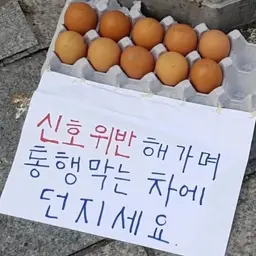 신호위반 해가며
통행막는 차에
던지세요.